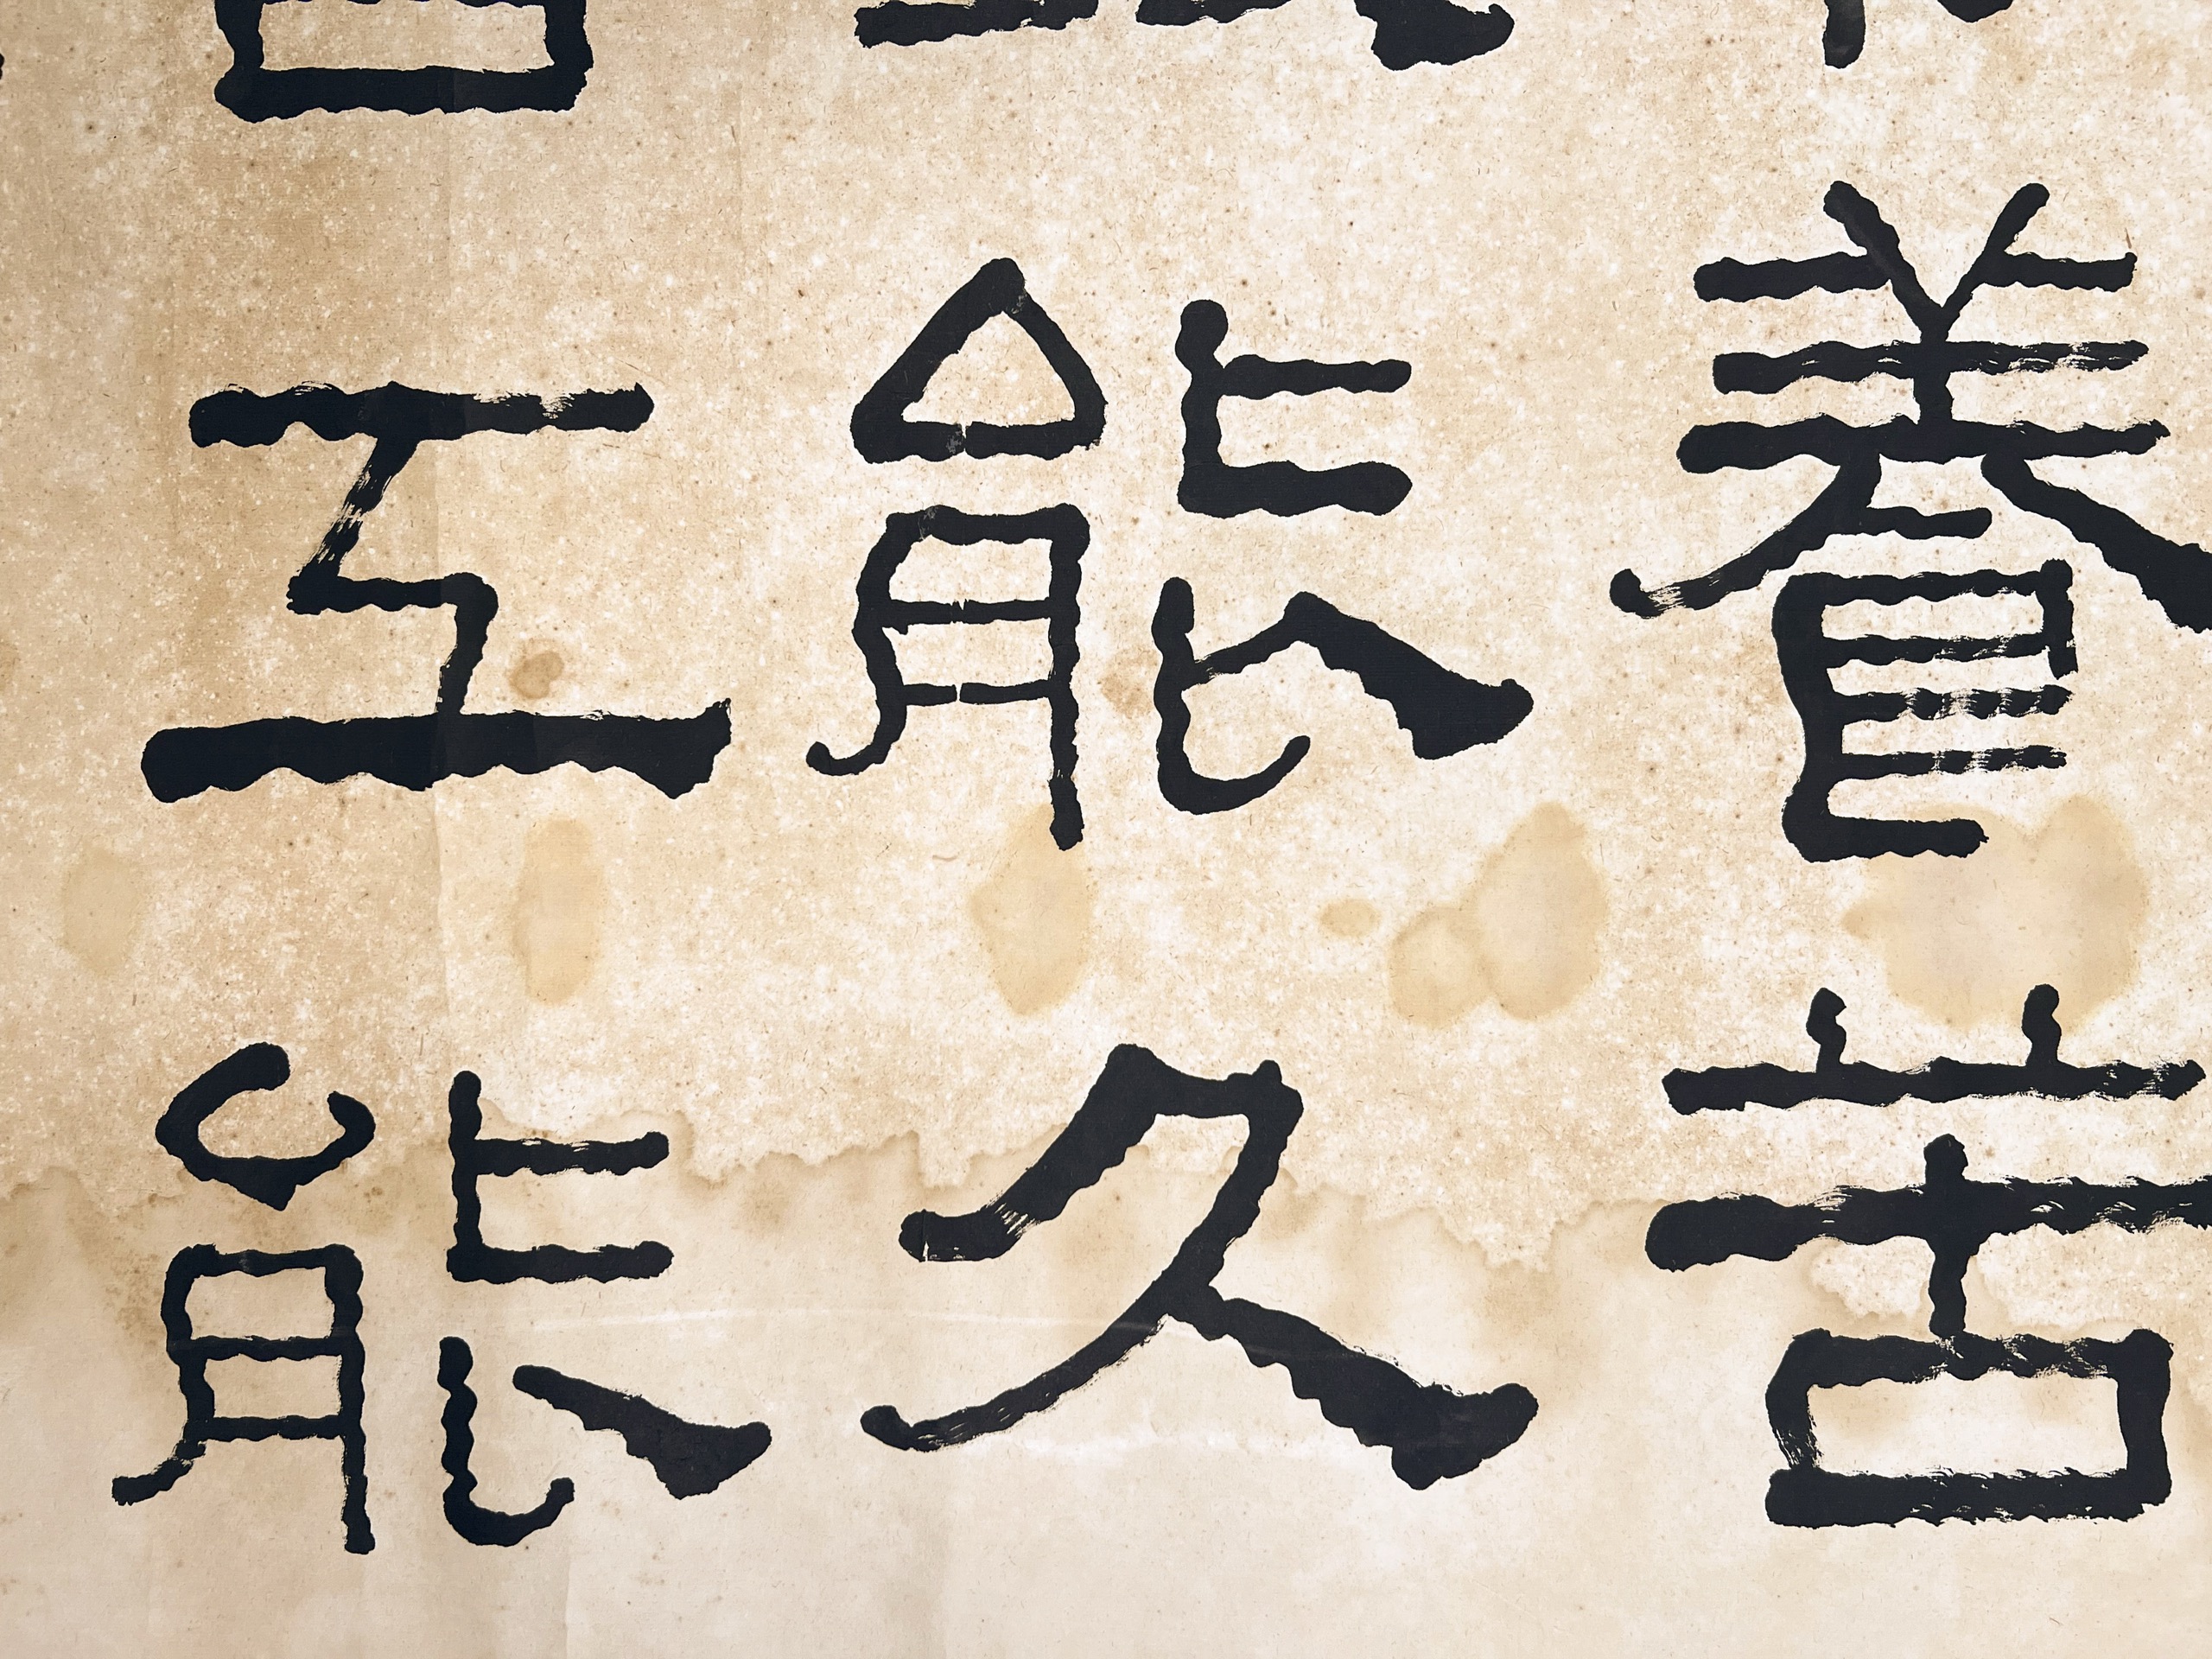 養苦
能久
互能